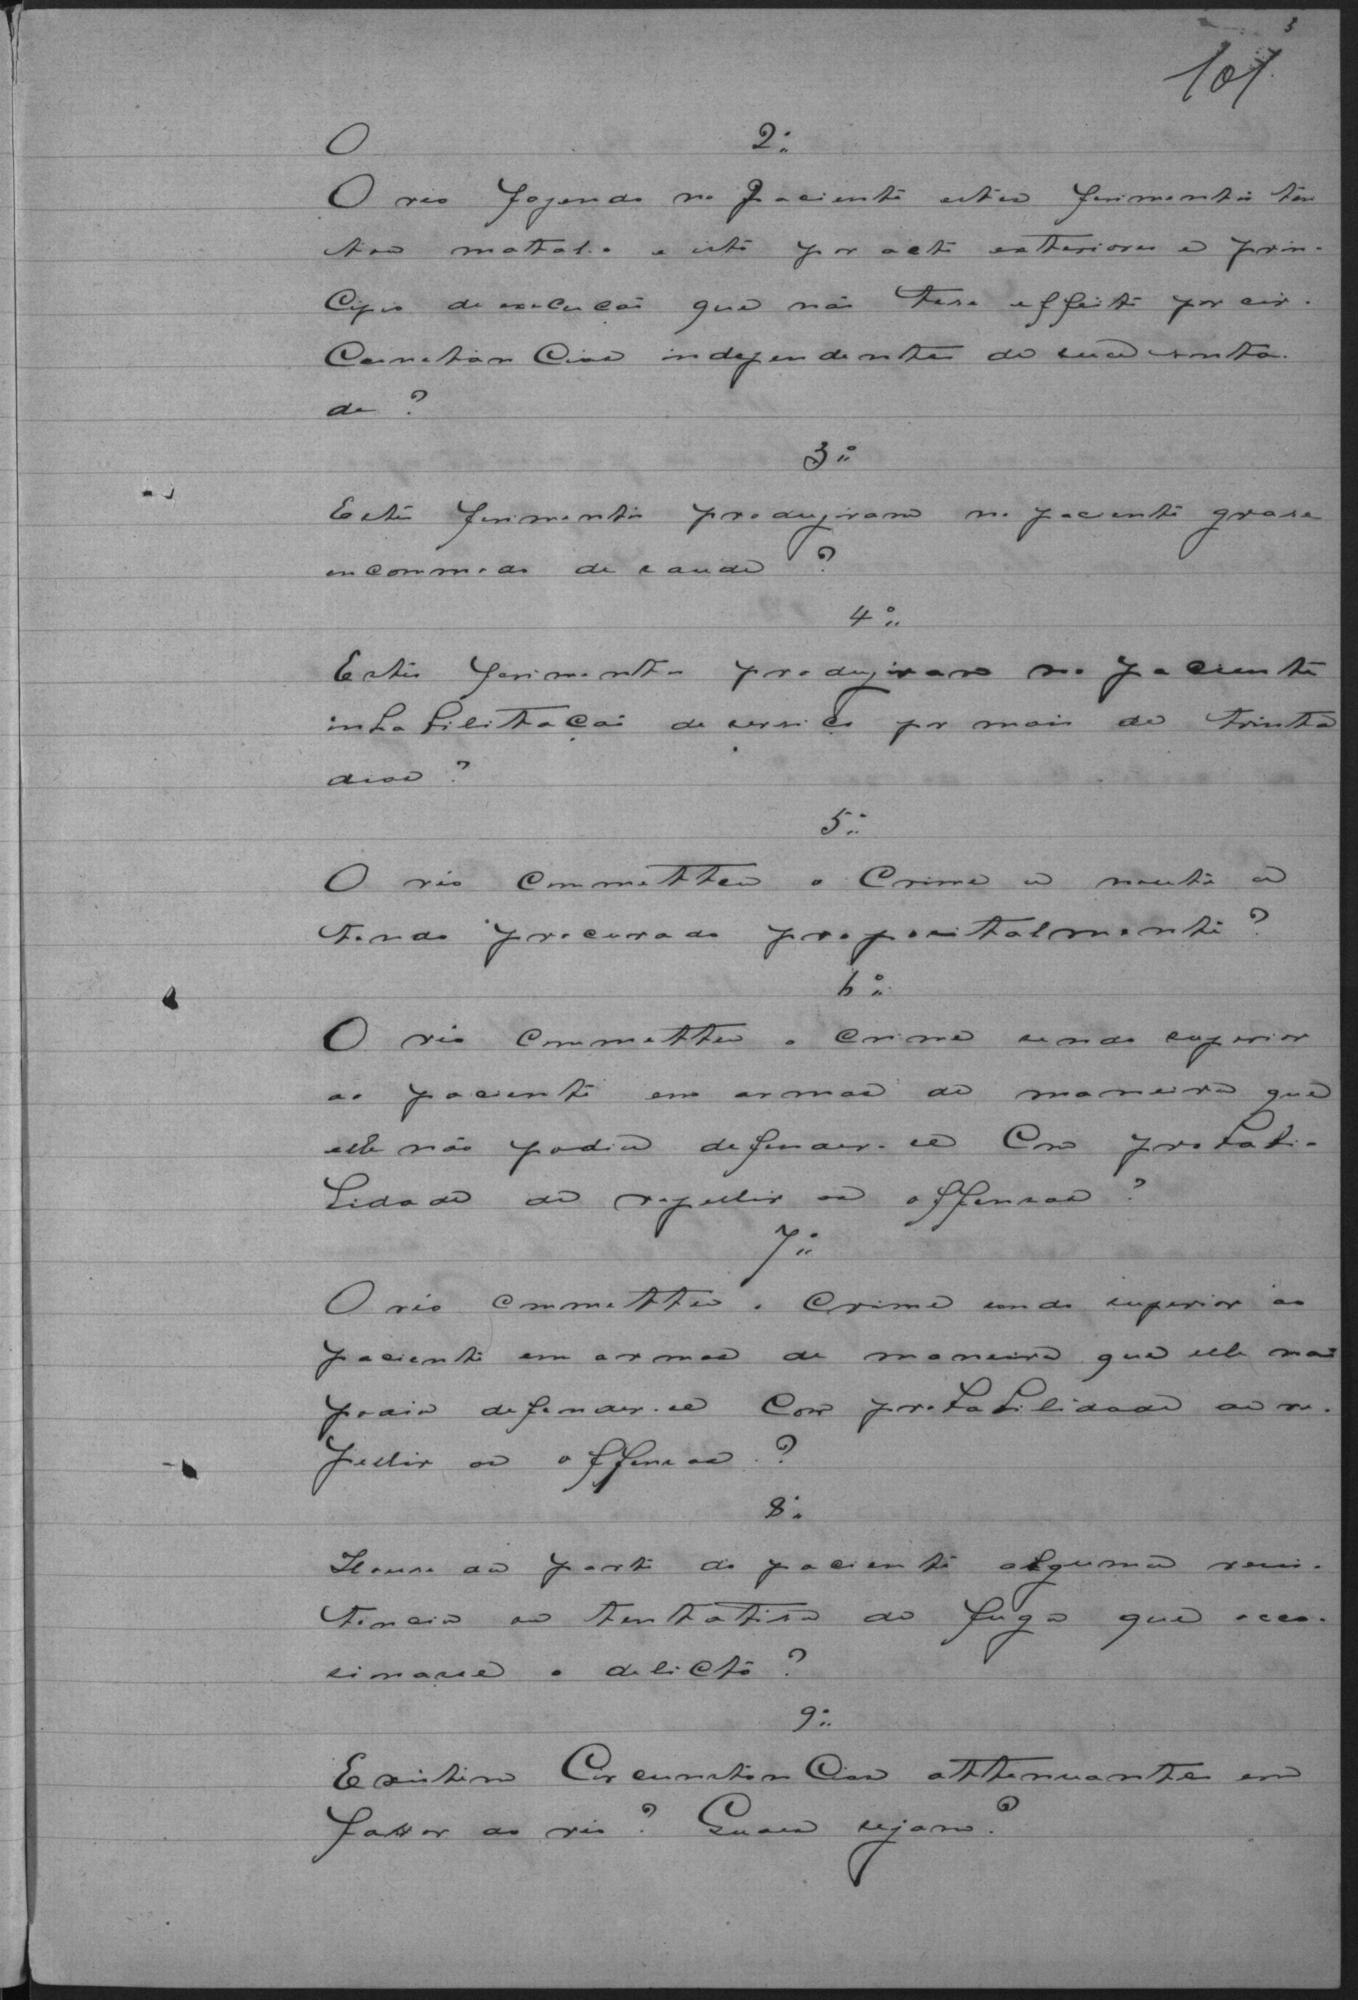 3
101
O 2º
O réo fazendo no paciente estes ferimentos ten
tou matal-o e isto por actos exteriores e prin-
cipio de execução que não teve effeito por cir-
cunstancias independentes de sua vonta-
de ?
3º
Estes ferimentos produziram no paciente grave
encommodo de saude ?
4º
Estes ferimentos produziram no paciente
inhabilitação de serviço por mais de trinta
dias ?
5º
O réo commetteu o crime a noute a
tendo procurado propositalmente ?
6º
O réo commetteu o crime sendo superior
ao paciente em armas de maneira que
elle não podia defender-se com probabi-
lidade de repellir as offensas ?
7º
O réo commetteu o crime sendo superior ao
paciente em armas de maneira que elle não
podia defender-se com probabilidade de re-
pellir as offensas ?
8º
Houve da parte do paciente alguma resis-
tencia ou tentativa de fuga que occa-
sionasse o delicto ?
9º
Existem circunstancias attenuantes em
favor do réo ? Quaes sejam ?